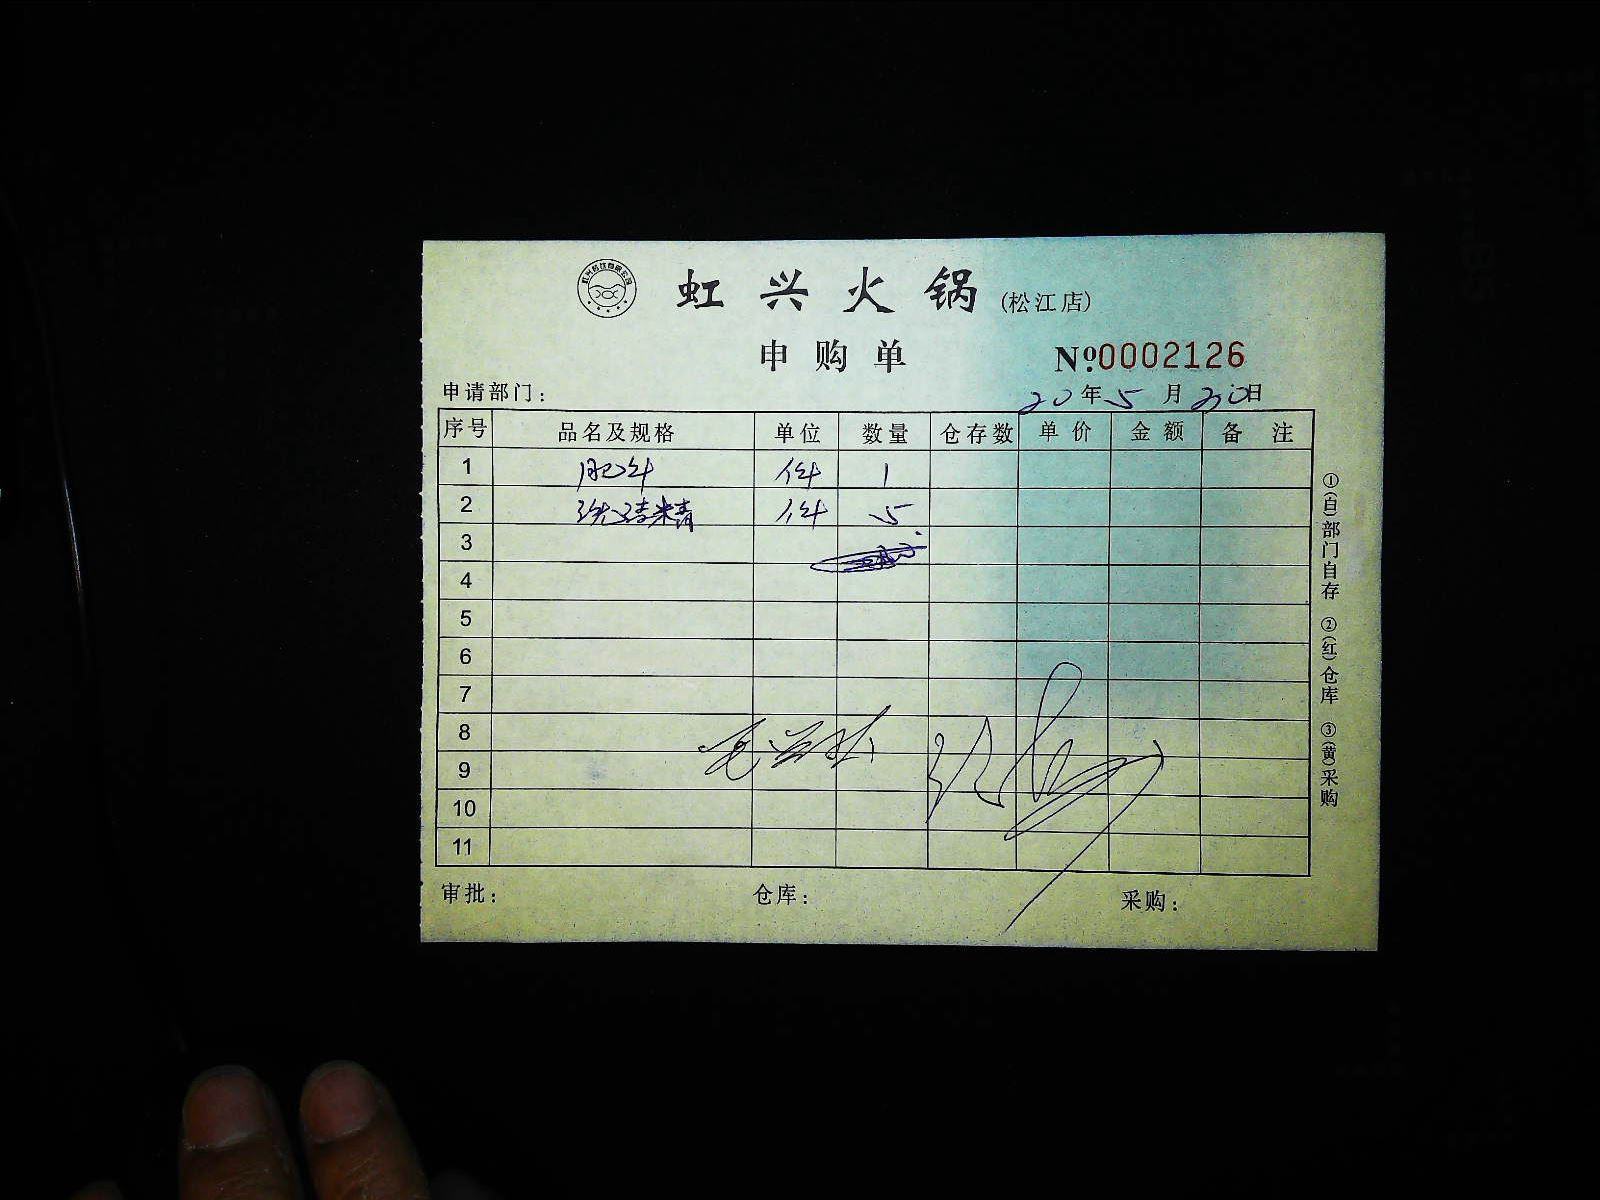 虹兴火锅(松江店)
申购单
№0002126
申请部门: 20年5月20日
序号 品名及规格 单位 数量 仓存数 单价 金额 备注
1 肥牛 件 1
2 洗洁精 件 5
3
4
5
6
7
8
9
10
11
审批: 仓库: 采购:
①(白)部门自存 ②(红)仓库 ③(黄)采购